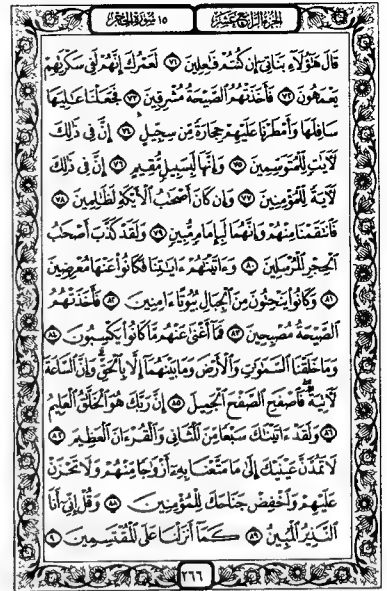 الجزء الرابع عشر
١٥ سورة الحجر
قَالَ هَٰٓؤُلَآءِ بَنَاتِىٓ إِن كُنتُمْ فَٰعِلِينَ ٧١ لَعَمْرُكَ إِنَّهُمْ لَفِى سَكْرَتِهِمْ
يَعْمَهُونَ ٧٢ فَأَخَذَتْهُمُ ٱلصَّيْحَةُ مُشْرِقِينَ ٧٣ فَجَعَلْنَا عَٰلِيَهَا
سَافِلَهَا وَأَمْطَرْنَا عَلَيْهِمْ حِجَارَةً مِّن سِجِّيلٍ ٧٤ إِنَّ فِى ذَٰلِكَ
لَءَايَٰتٍ لِّلْمُتَوَسِّمِينَ ٧٥ وَإِنَّهَا لَبِسَبِيلٍ مُّقِيمٍ ٧٦ إِنَّ فِى ذَٰلِكَ
لَءَايَةً لِّلْمُؤْمِنِينَ ٧٧ وَإِن كَانَ أَصْحَٰبُ ٱلْأَيْكَةِ لَظَٰلِمِينَ ٧٨
فَٱنتَقَمْنَا مِنْهُمْ وَإِنَّهُمَا لَبِإِمَامٍ مُّبِينٍ ٧٩ وَلَقَدْ كَذَّبَ أَصْحَٰبُ
ٱلْحِجْرِ ٱلْمُرْسَلِينَ ٨٠ وَءَاتَيْنَٰهُمْ ءَايَٰتِنَا فَكَانُوا۟ عَنْهَا مُعْرِضِينَ
٨١ وَكَانُوا۟ يَنْحِتُونَ مِنَ ٱلْجِبَالِ بُيُوتًا ءَامِنِينَ ٨٢ فَأَخَذَتْهُمُ
ٱلصَّيْحَةُ مُصْبِحِينَ ٨٣ فَمَآ أَغْنَىٰ عَنْهُم مَّا كَانُوا۟ يَكْسِبُونَ ٨٤
وَمَا خَلَقْنَا ٱلسَّمَٰوَٰتِ وَٱلْأَرْضَ وَمَا بَيْنَهُمَآ إِلَّا بِٱلْحَقِّ وَإِنَّ ٱلسَّاعَةَ
لَءَاتِيَةٌ فَٱصْفَحِ ٱلصَّفْحَ ٱلْجَمِيلَ ٨٥ إِنَّ رَبَّكَ هُوَ ٱلْخَلَّٰقُ ٱلْعَلِيمُ
٨٦ وَلَقَدْ ءَاتَيْنَٰكَ سَبْعًا مِّنَ ٱلْمَثَانِى وَٱلْقُرْءَانَ ٱلْعَظِيمَ ٨٧
لَا تَمُدَّنَّ عَيْنَيْكَ إِلَىٰ مَا مَتَّعْنَا بِهِۦٓ أَزْوَٰجًا مِّنْهُمْ وَلَا تَحْزَنْ
عَلَيْهِمْ وَٱخْفِضْ جَنَاحَكَ لِلْمُؤْمِنِينَ ٨٨ وَقُلْ إِنِّىٓ أَنَا
ٱلنَّذِيرُ ٱلْمُبِينُ ٨٩ كَمَآ أَنزَلْنَا عَلَى ٱلْمُقْتَسِمِينَ ٩٠
٢٦٦